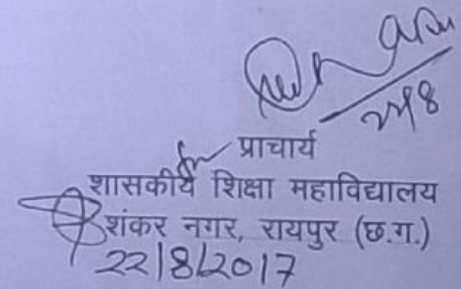 for प्राचार्य
शासकीय शिक्षा महाविद्यालय
शंकर नगर, रायपुर (छ.ग.)
22/8/2017